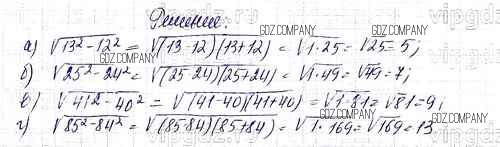 Решение:
а) √(13² - 12²) = √((13-12)(13+12)) = √(1·25) = √25 = 5;
б) √(25² - 24²) = √((25-24)(25+24)) = √(1·49) = √49 = 7;
в) √(41² - 40²) = √((41-40)(41+40)) = √(1·81) = √81 = 9;
г) √(85² - 84²) = √((85-84)(85+84)) = √(1·169) = √169 = 13
GDZ.COMPANY
GDZ.COMPANY
GDZ.COMPANY
GDZ.COMPANY
GDZ.COMPANY
vipgdz
vipgdz